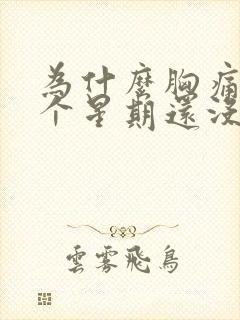 為什麼胸痛
个星期還沒
雲霧飛鳥